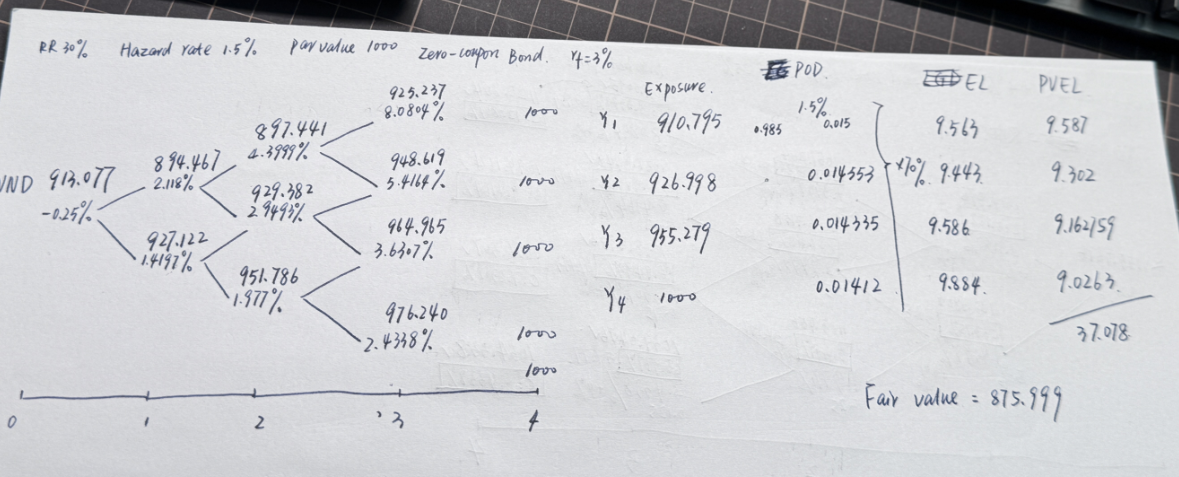 RR 30% Hazard rate 1.5% Par value 1000 Zero-coupon Bond. rf=3%
925.237
8.0804%
897.441
4.3999%
894.467
2.118%
VND 913.077
-0.25%
929.382
2.9493%
948.619
5.4164%
927.122
1.4197%
964.965
3.6307%
951.786
1.977%
976.240
2.4338%
1000
1000
1000
1000
1000
0 1 2 3 4
Exposure. POD EL PVEL
Y1 910.795 0.985 1.5% 0.015 9.563 9.587
Y2 926.998 0.014553 ×70% 9.443 9.302
Y3 955.279 0.014335 9.586 9.162759
Y4 1000 0.01412 9.884 9.0263
37.078
Fair value = 875.999